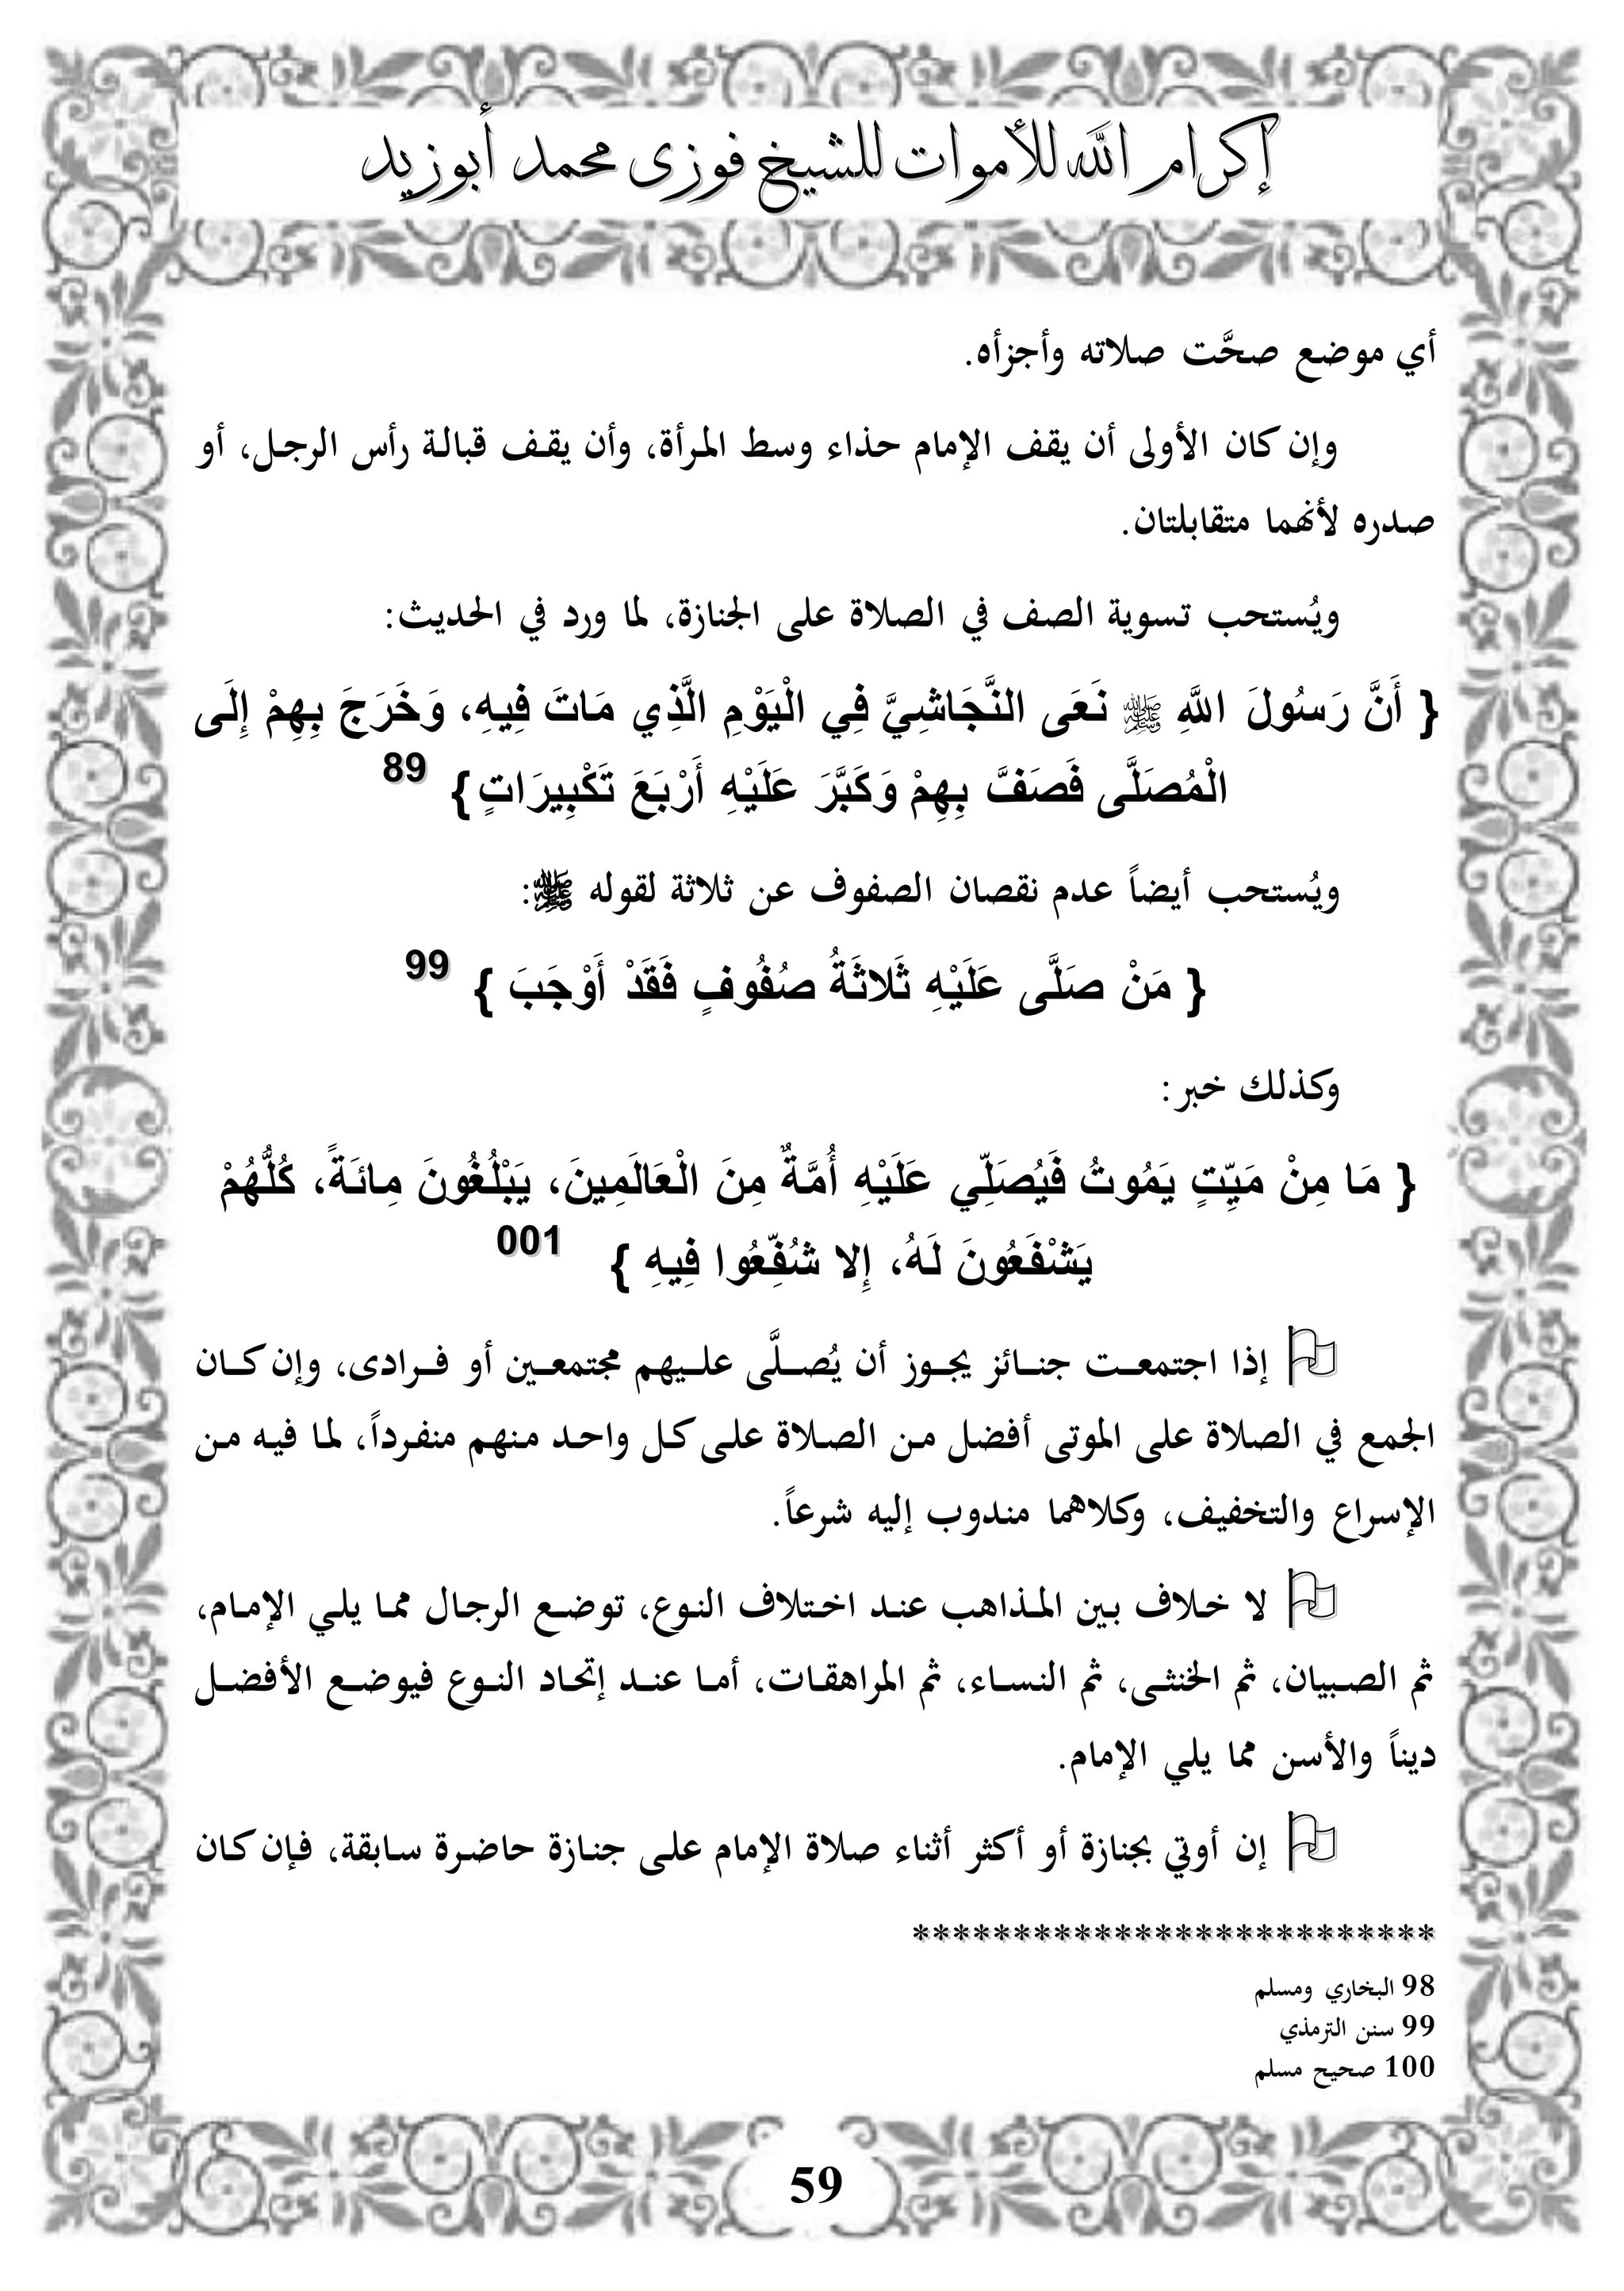 إكرام الله للأموات للشيخ فوزى محمد أبوزيد
أي موضع صحَّت صلاته وأجزأه.
وإن كان الأولى أن يقف الإمام حذاء وسط المرأة، وأن يقف قبالة رأس الرجل، أو
صدره لأنهما متقابلتان.
ويُستحب تسوية الصف في الصلاة على الجنازة، لما ورد في الحديث:
{ أَنَّ رَسُولَ اللَّهِ ﷺ نَعَى النَّجَاشِيَّ فِي الْيَوْمِ الَّذِي مَاتَ فِيهِ، وَخَرَجَ بِهِمْ إِلَى
الْمُصَلَّى فَصَفَّ بِهِمْ وَكَبَّرَ عَلَيْهِ أَرْبَعَ تَكْبِيرَاتٍ } 89
ويُستحب أيضاً عدم نقصان الصفوف عن ثلاثة لقوله ﷺ:
{ مَنْ صَلَّى عَلَيْهِ ثَلاثَةُ صُفُوفٍ فَقَدْ أَوْجَبَ } 99
وكذلك خبر:
{ مَا مِنْ مَيِّتٍ يَمُوتُ فَيُصَلِّي عَلَيْهِ أُمَّةٌ مِنَ الْعَالَمِينَ، يَبْلُغُونَ مِائَةً، كُلُّهُمْ
يَشْفَعُونَ لَهُ، إِلا شُفِّعُوا فِيهِ } 001
إذا اجتمعت جنائز يجوز أن يُصلَّى عليهم مجتمعين أو فرادى، وإن كان
الجمع في الصلاة على الموتى أفضل من الصلاة على كل واحد منهم منفرداً، لما فيه من
الإسراع والتخفيف، وكلاهما مندوب إليه شرعاً.
لا خلاف بين المذاهب عند اختلاف النوع، توضع الرجال مما يلي الإمام،
ثم الصبيان، ثم الخنثى، ثم النساء، ثم المراهقات، أما عند إتحاد النوع فيوضع الأفضل
ديناً والأسن مما يلي الإمام.
إن أوتي بجنازة أو أكثر أثناء صلاة الإمام على جنازة حاضرة سابقة، فإن كان
**************************
98 البخاري ومسلم
99 سنن الترمذي
100 صحيح مسلم
59